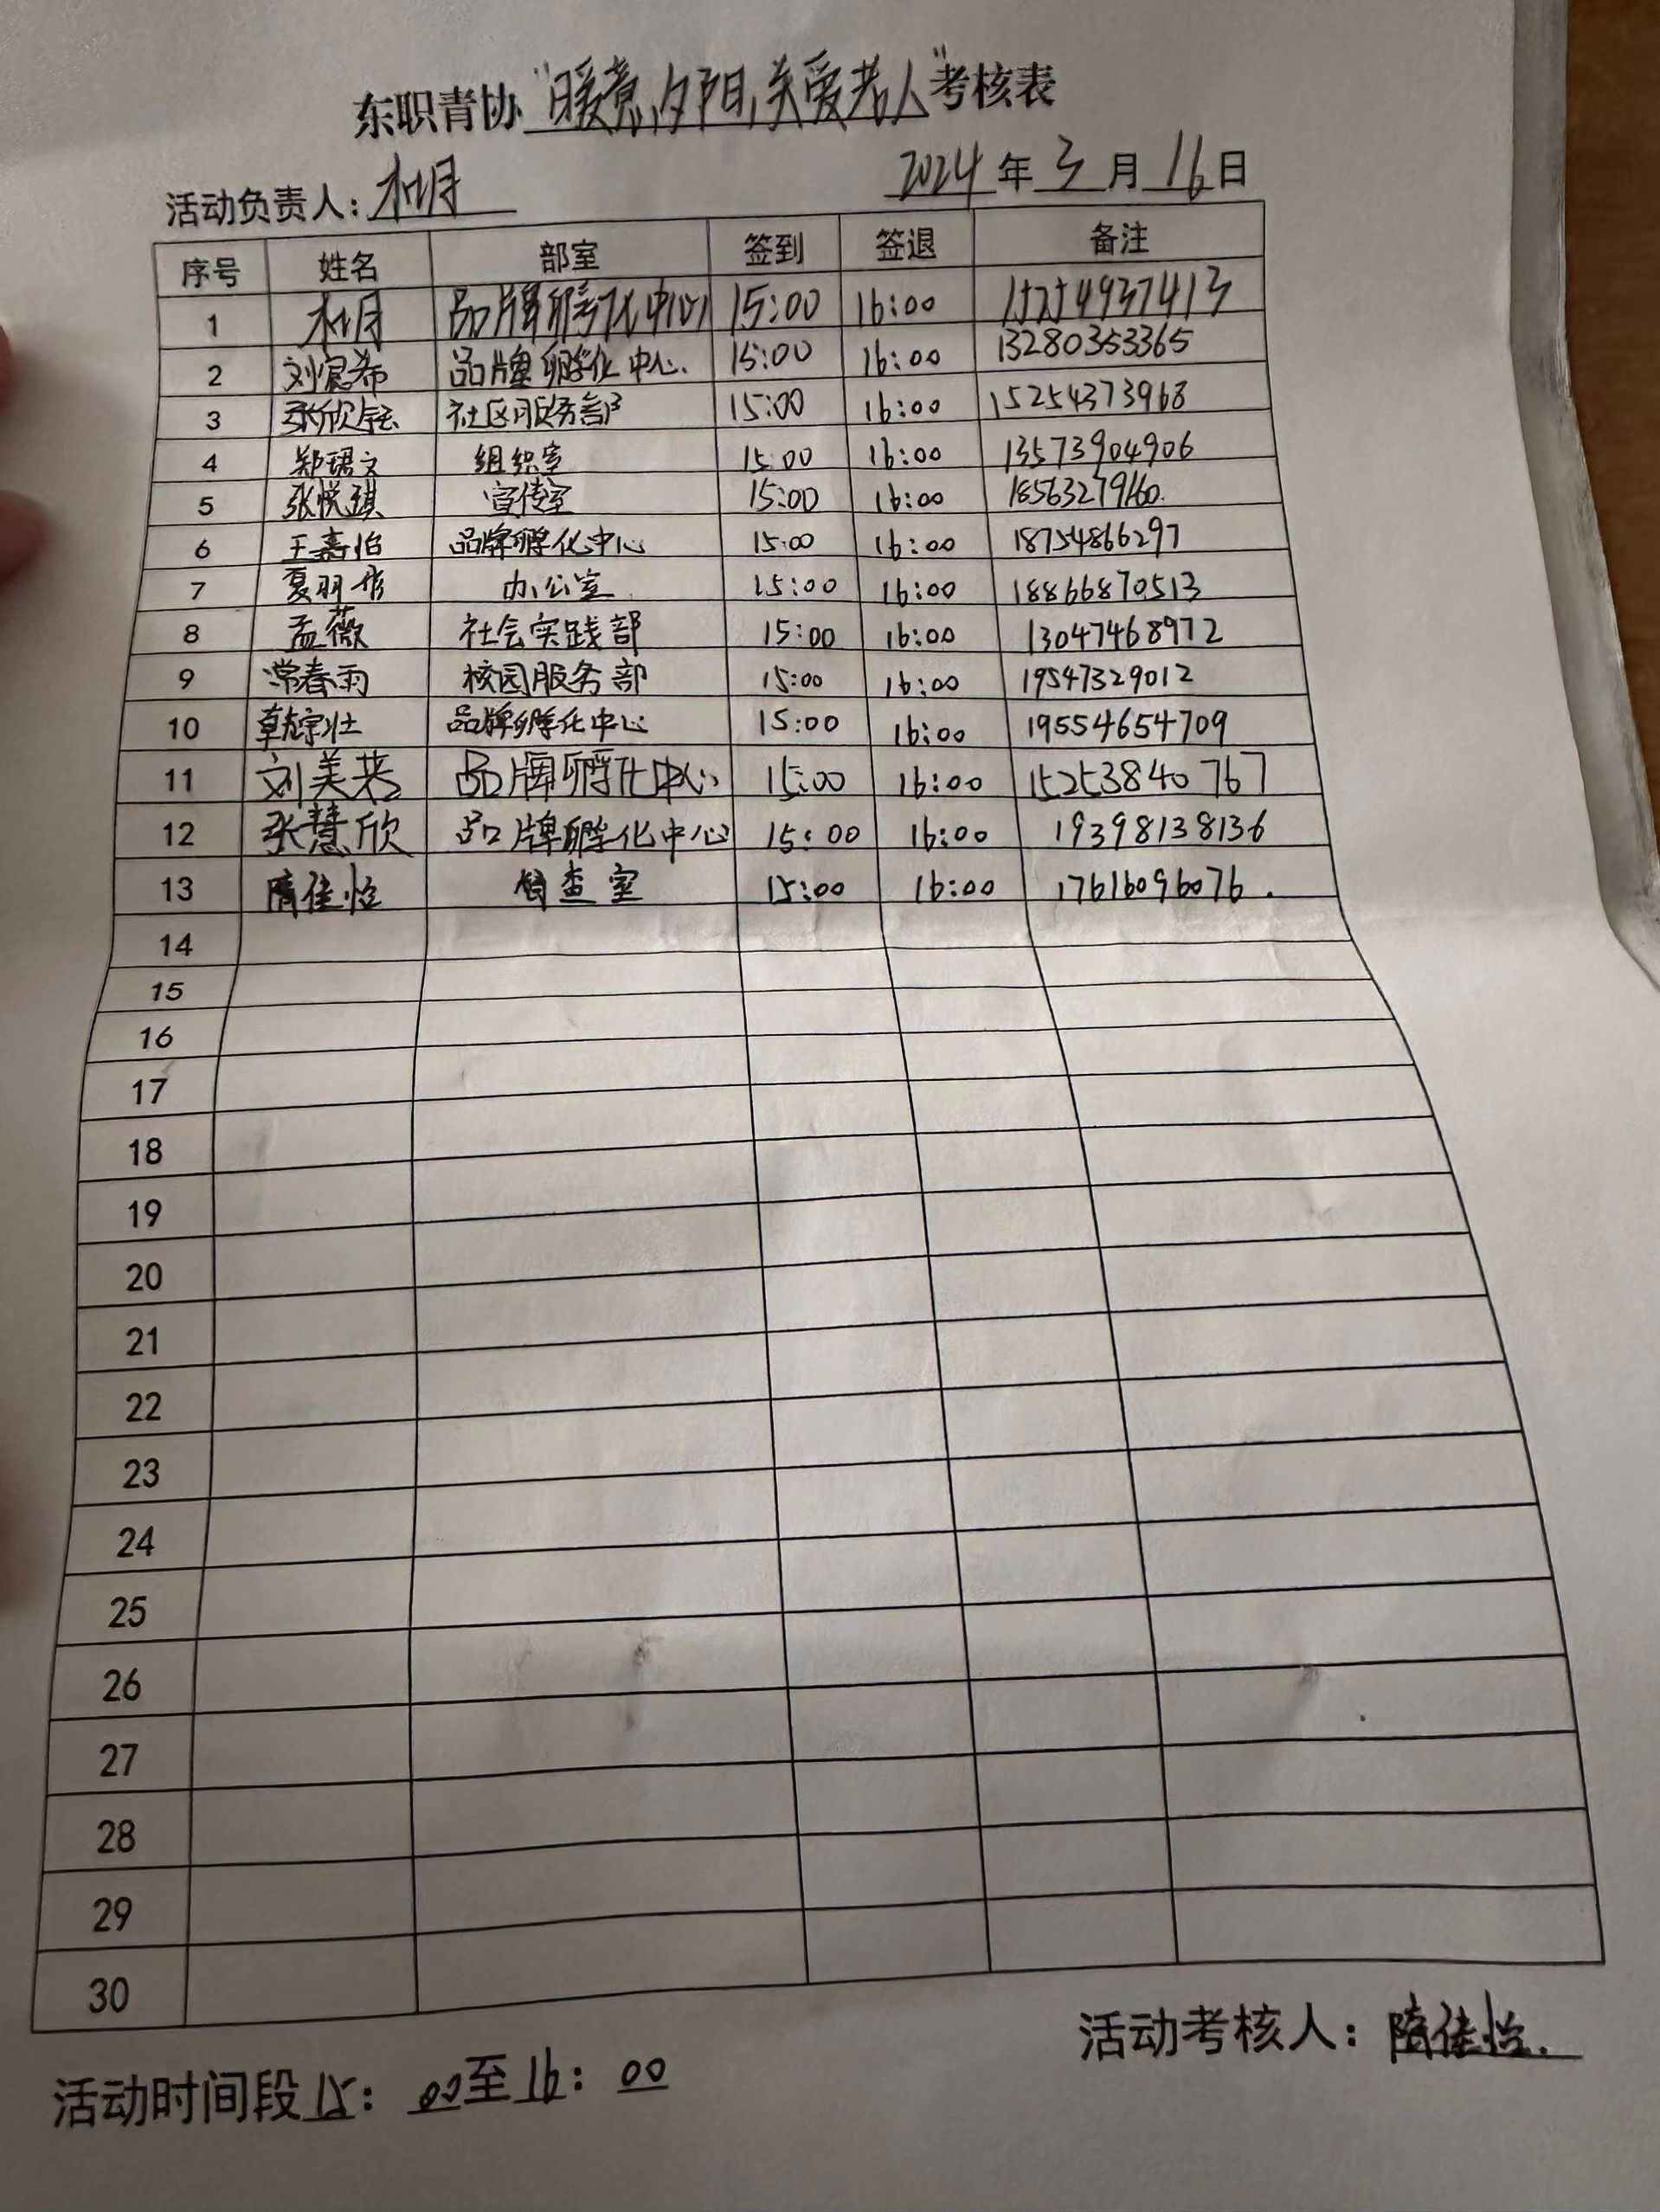 东职青协“暖意夕阳,关爱老人”考核表
活动负责人:杜月 2024年3月16日
序号 姓名 部室 签到 签退 备注
1 杜月 品牌孵化中心 15:00 16:00
2 刘宸希 品牌孵化中心. 15:00 16:00 13280353365
3 张欣钰 社区服务部 15:00 16:00 15254373968
4 郑珺文 组织室 15:00 16:00 13573904906
5 张悦琪 宣传室 15:00 16:00 18563279160.
6 王嘉怡 品牌孵化中心 15:00 16:00 18754866297
7 夏羽 办公室 15:00 16:00 18866870513
8 孟薇 社会实践部 15:00 16:00 13047468972
9 常春雨 校园服务部 15:00 16:00 19547329012
10 品牌孵化中心 15:00 16:00 19554654709
11 刘美 品牌孵化中心 15:00 16:00 15253840767
12 张慧欣 品牌孵化中心 15:00 16:00 19398138136
13 隋佳怡 督查室 15:00 16:00 17616096076.
14
15
16
17
18
19
20
21
22
23
24
25
26
27
28
29
30
活动考核人:隋佳怡.
活动时间段15:00至16:00